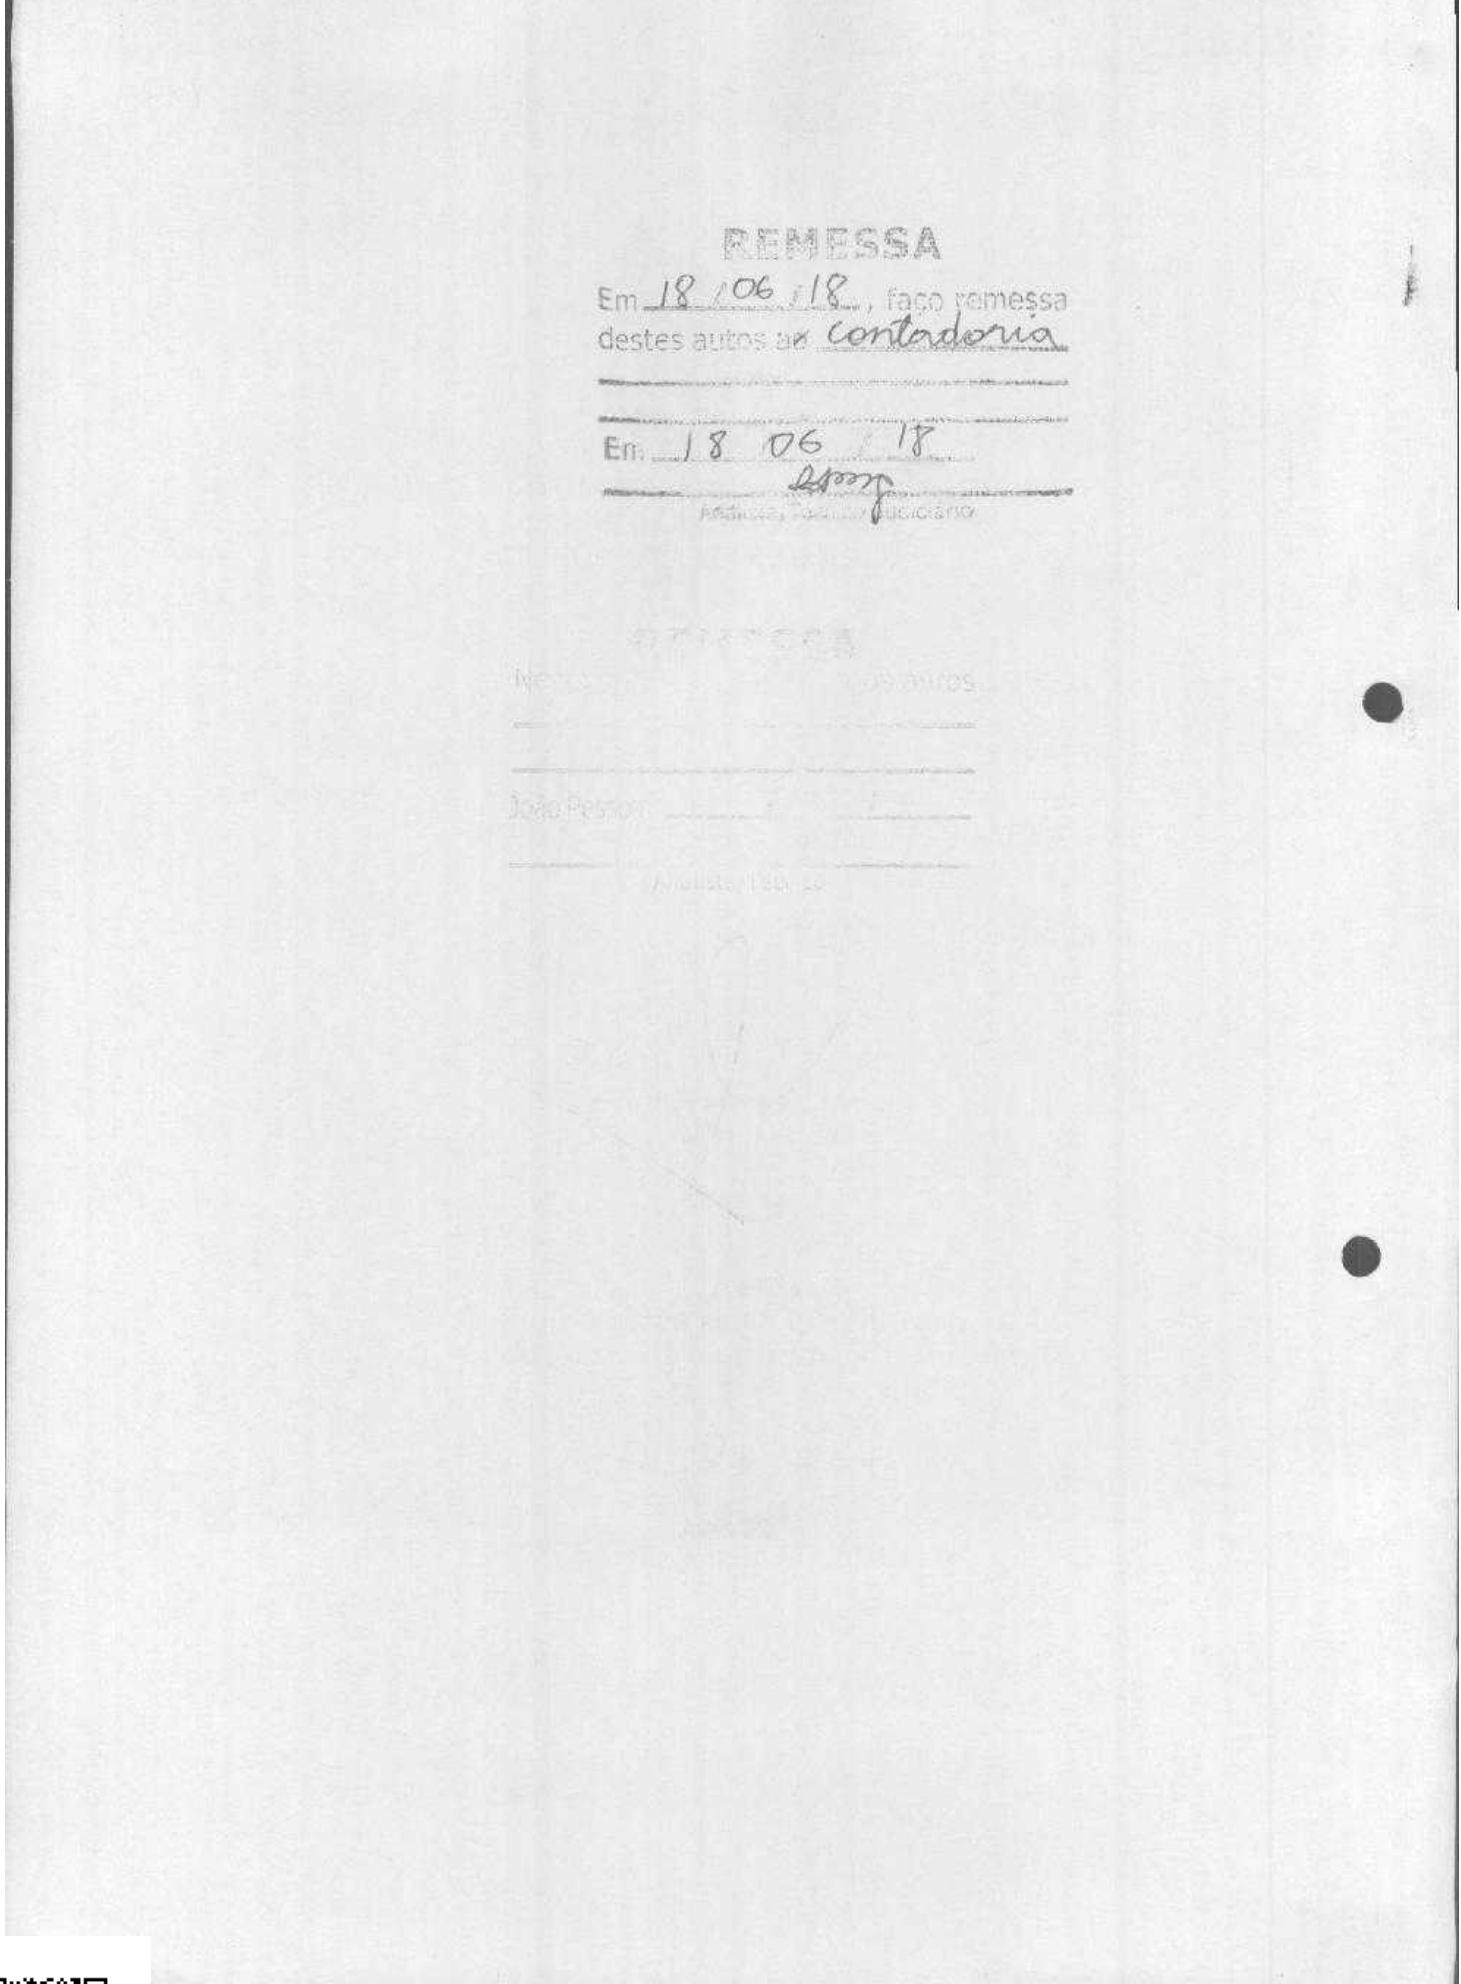 REMESSA
Em 18/06/18, faço remessa
destes autos a contadoria
Em 18 06 / 18
Analista/Técnico Judiciário
REMESSA
autos
João Pessoa / /
Analista/Técnico